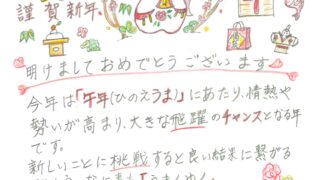 謹賀新年
明けましておめでとうございます
今年は「午年(ひのえうま)」にあたり、情熱や
勢いが高まり、大きな飛躍のチャンスとなる年
です。
新しいことに挑戦すると良い結果に繋がる